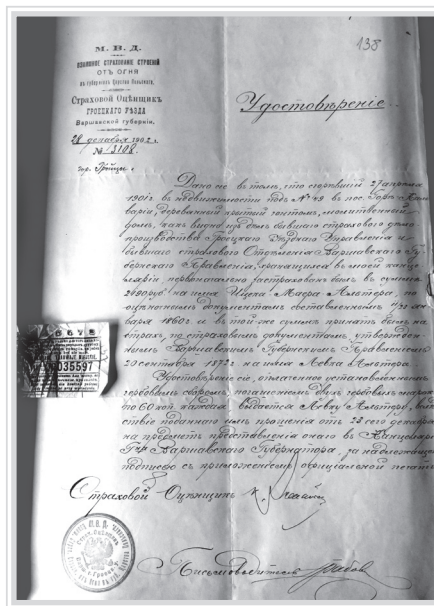 138
М. В. Д.
ВЗАИМНОЕ СТРАХОВАНІЕ СТРОЕНІЙ
ОТЪ ОГНЯ
въ губерніяхъ Царства Польскаго.
Страховой Оцѣнщикъ
ГРОЕЦКАГО УѢЗДА
Варшавской губерніи.
28 декабря 1902 г.
№ 3108.
гор. Гройцы.
Удостовѣреніе.
Дано сіе въ томъ, что сгорѣвшій 27 апрѣля
1901 г. въ недвижимости подъ № 49 въ пос. Гора Каль
варія, деревянный крытый гонтомъ, молитвенный
домъ, какъ видно изъ дѣлъ бывшаго страхового дѣло
производства Гроецкаго Уѣзднаго Управленія и
бывшаго страхового Отдѣленія Варшавскаго Гу
бернскаго Правленія, хранящихся въ моей канце
ляріи первоначально застрахованъ былъ въ суммѣ
2490 руб. на имя Ицека Маера Альтера, по
оцѣночнымъ документамъ составленнымъ ян
варя 1860 г. и въ той-же суммѣ принятъ былъ на
страхъ, по страховымъ документамъ, утвержден
нымъ Варшавскимъ Губернскимъ Правленіемъ
20 сентября 1872 г. на имя Левка Альтера.
Удостовѣреніе сіе, оплаченное установленнымъ
гербовымъ сборомъ, погашеніемъ двухъ гербовыхъ марокъ
по 60 коп. каждая выдается Левку Альтеру, вслѣд
ствіе поданнаго имъ прошенія отъ 23 сего декабря
на предметъ представленія онаго въ Канцелярію
Г-на Варшавскаго Губернатора, за надлежащею
подписью съ приложеніемъ официальной печати.
8678
035597
Страховой Оцѣнщикъ
М. В. Д.
Письмоводитель